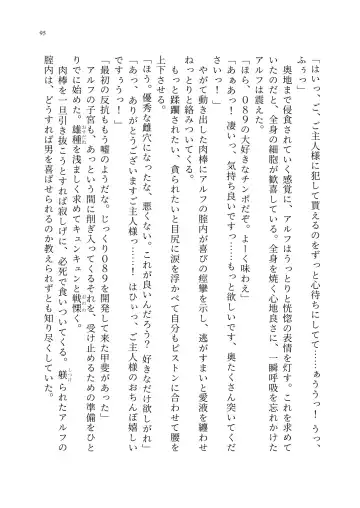 「はいっ、ご、ご主人様に犯して貰えるのをずっと心待ちにしてて……ぁううっ！　うっ、
ふぅっ」
　奥地まで侵食されていく感覚に、アルフはうっとりと恍惚の表情を灯す。これを求めて
いたのだと、全身の細胞が歓喜している。全身を焼く心地良さに、一瞬呼吸を忘れかけた
アルフは震えた。
「ほら、０８９の大好きなチンポだぞ。よーく味わえ」
「あぁぁっ！　凄いっ、気持ち良いですっ……もっと欲しいです、奥たくさん突いてくだ
さいっ！」
　やがて動き出した肉棒にアルフの腟内が喜びの痙攣を示し、逃がすまいと愛液を纏わせ
ねっとりと絡みついてくる。
　もっと蹂躙されたい、貪られたいと目尻に涙を浮かべて自分もピストンに合わせて腰を
上下させる。
「ほう。優秀な雌穴になったな、悪くない。これが良いんだろう？　好きなだけ欲しがれ」
「あっ、ありがとうございますご主人様っ……！　はひぃっ、ご主人様のおちんぽ嬉しい
ですぅうっ！」
「最初の反抗ももう嘘のようだな。じっくり０８９を開発して来た甲斐があった」
　アルフの子宮も、あっという間に削ぎ入ってくるそれを、受け止めるための準備をひと
りでに始めた。雄種を浅ましく求めてキュンキュンと戦慄く。
　肉棒を一旦引き抜こうとすれば寂しげに、必死で食いついてくる。躾られたアルフの
腟内は、どうすれば男を喜ばせられるのか教えられずとも知り尽くしていた。
95